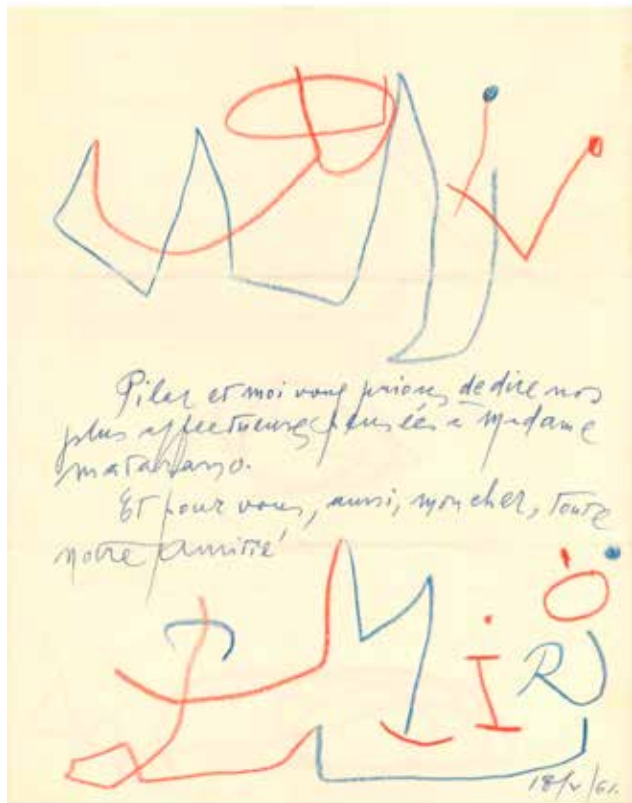 Pilar et moi vous prions de dire nos
plus affectueuses pensées à Madame
Matarasso.
Et pour vous, aussi, mon cher, toute
notre amitié
MIRÓ
18/V/61.